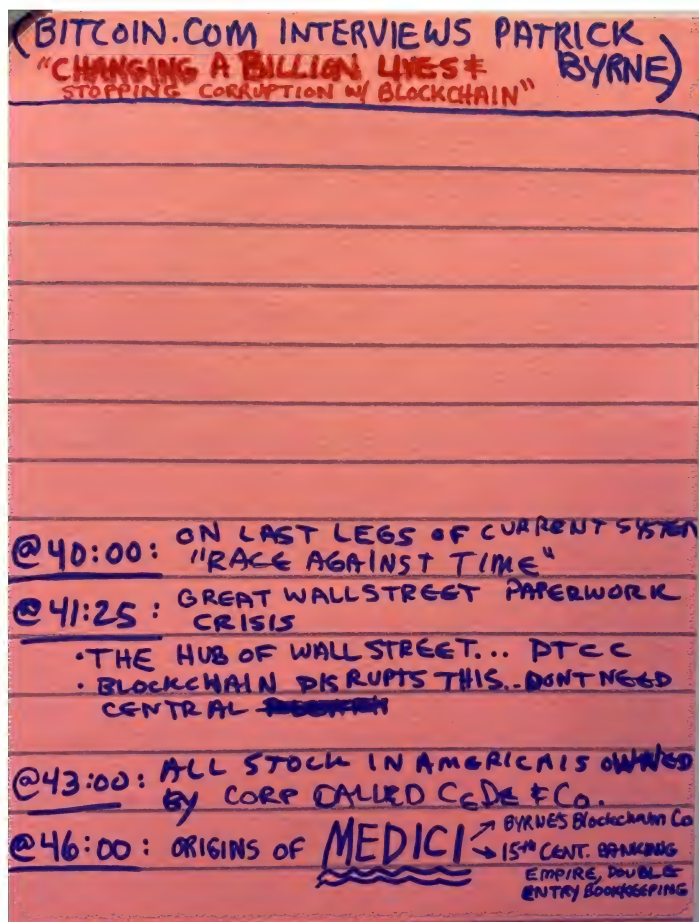 (BITCOIN.COM INTERVIEWS PATRICK BYRNE)
"CHANGING A BILLION LIVES &
STOPPING CORRUPTION W/ BLOCKCHAIN"
@40:00: ON LAST LEGS OF CURRENT SYSTEM
"RACE AGAINST TIME"
@41:25: GREAT WALLSTREET PAPERWORK
CRISIS
·THE HUB OF WALL STREET... DTCC
·BLOCKCHAIN DISRUPTS THIS..DONT NEED
CENTRAL
@43:00: ALL STOCK IN AMERICA IS OWNED
BY CORP CALLED CEDE & CO.
@46:00: ORIGINS OF MEDICI
→ BYRNE'S Blockchain Co
→ 15th CENT. BANKING
EMPIRE, DOUBLE
ENTRY BOOKKEEPING